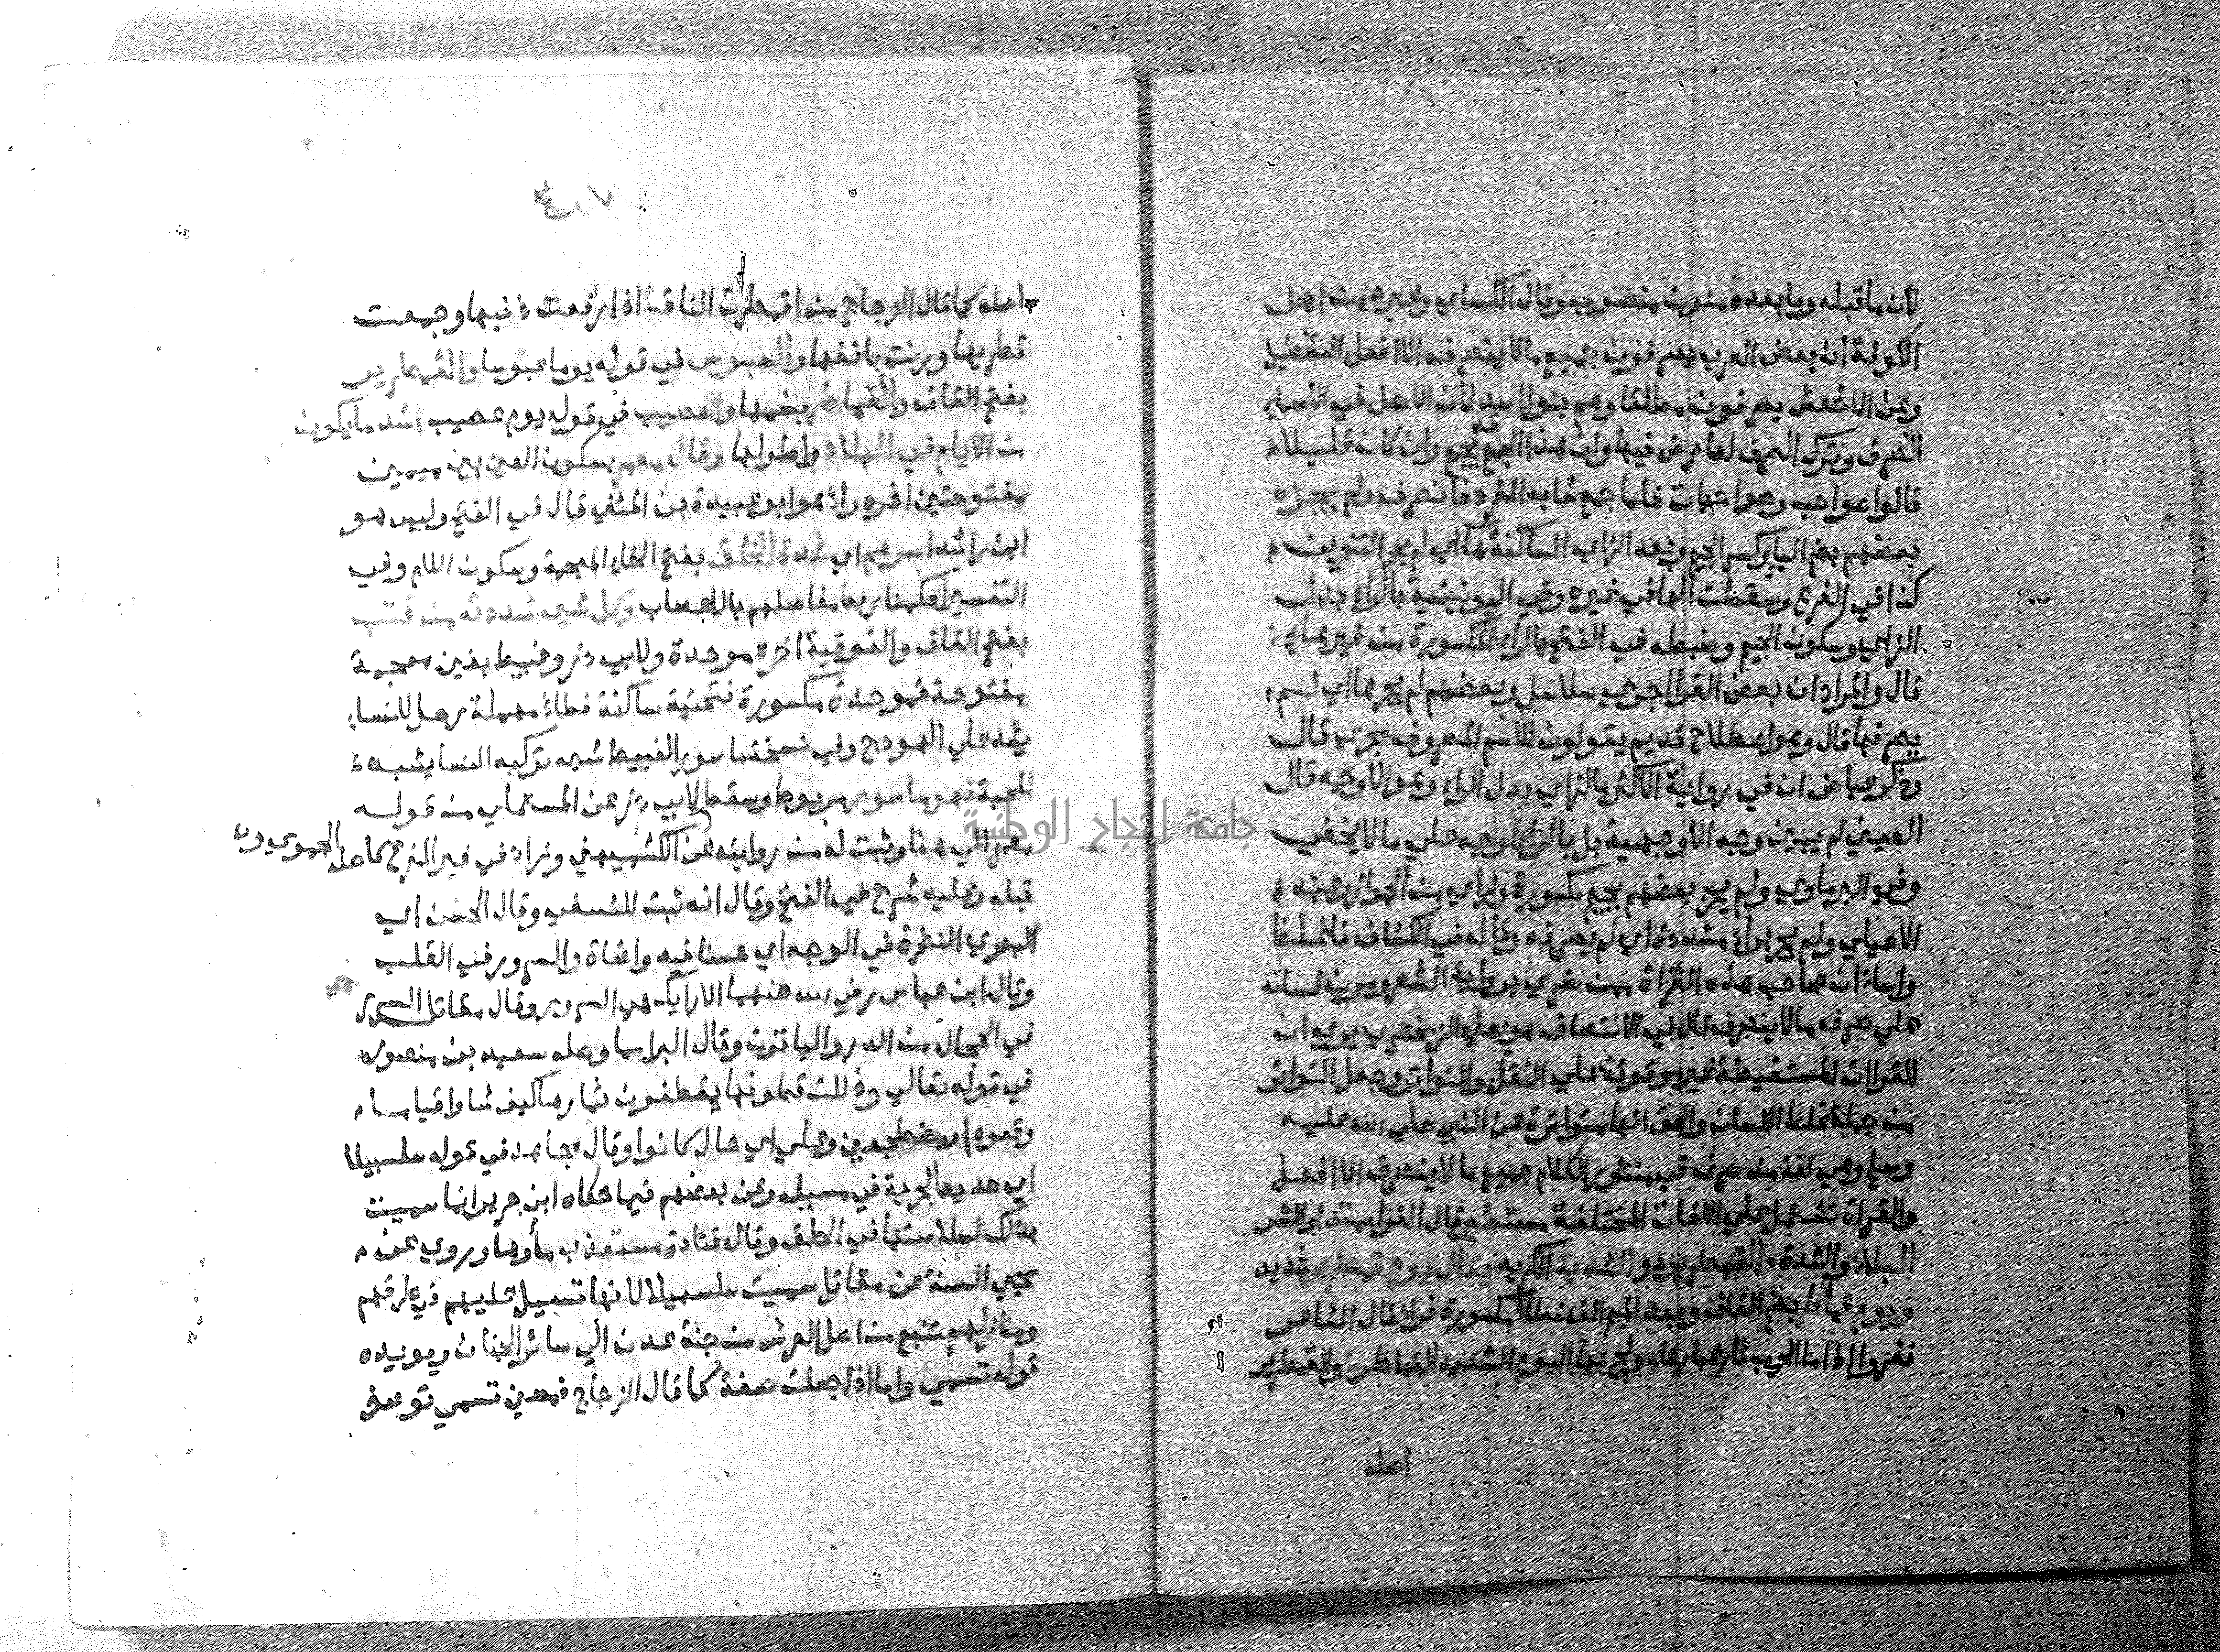 لأن ما قبله وما بعده منون منصوب وقال الكسائي وغيره من اهل
الكوفة ان بعض العرب يصرفون جميع مالا ينصرف الا افعل التفضيل
وعن الاخفش يصرفون مطلقا وهم بنوا اسد لأن الاصل في الأسماء
الصرف وترك الصرف لعارض فيها وان هذا الجمع قد يجمع وان كان قليلا
قالوا صواحب وصواحبات فلما جمع شابه المفرد فانصرف ولم يجزه
بعضهم بضم اليا وكسر الجيم وبعد الزاي الساكنة هاء اي لم يجز التنوين
كذا في الفرع وسقطت الها في غيره وفي اليونينية بالراء بدل
الزاي وسكون الجيم وضبطه في الفتح بالراء المكسورة من غير هاء
قال والمراد ان بعض القرا اجرى سلاسل وبعضهم لم يجرها اي لم
يصرفها قال وهو اصطلاح قديم يقولون للاسم المصروف مجرى قال
وذكر عياض ان في رواية الاكثر بالزاي بدل الراء وهو الأوجه قال
العيني لم يبين وجه الأوجهية بل بالراء اوجه على مالا يخفى
وفي البرماوي ولم يجز بعضهم بجيم مكسورة وزاي من الجواز وعند
الاصيلي ولم يجر براء مشددة اي لم يصرفه وقال في الكشاف فانه غلظ
واساء ان صاحب هذه القراة ممن ضري برواية الشعر ومرن لسانه
على صرف مالا ينصرف قال في الانتصاف هو يعني الزمخشري يرى ان
القراات المستفيضة غير موقوفة على النقل والتواتر وجعل التواتر
من جملة غلط اللسان والحق انها متواترة عن النبي صلى الله عليه
وسلم وهي لغة من صرف في منثور الكلام جميع مالا ينصرف الا افعل
والقرآن تشتمل على اللغات المختلفة مستطير قال الفرا ممتدا والشر
البلاء والشدة والقمطرير هو الشديد الكريه يقال يوم قمطرير شديد
ويوم قماطر بضم القاف وبعد الميم الف فطاء مكسورة فراء قال الشاعر
ففروا اذا ما الحرب ثار غبارها ولج بها اليوم الشديد القماطر والقمطرير
اصله
اصله كما قال الزجاج من اقمطرت الناقة اذا رفعت ذنبها وجمعت
قطريها وزمت بانفها والعبوس في قوله يوما عبوسا والقمطرير
بفتح القاف والقماطر بضمها والعصيب في قوله يوم عصيب اشد ما يكون
من الايام في البلاء واطولها وقال معمر بسكون العين بين ميمين
مفتوحتين اخره راء هو ابو عبيدة بن المثنى قال في الفتح وليس هو
ابن راشد اسرهم اي شدة الخلق بفتح الخاء المعجمة وسكون اللام وفي
التفسير احكمنا ربط مفاصلهم بالاعصاب وكل شيء شددته من قتب
بفتح القاف والفوقية اخره موحدة ولابي ذر وغبيط بغين معجمة
مفتوحة فموحدة مكسورة فتحتية ساكنة فطاء مهملة رحل للنساء
يشد على الهودج وفي نسخة ماسور الغبيط شيء تركبه النسا يشبه
المحبة فهو ماسور مربوط وسقط لابي ذر عن المستملي من قوله
معنى الى هنا وثبت له من روايته عن الكشميهني وزاد في غير الفرع كاصله الحموي ون
قبله وعليه شرح في الفتح وقال انه ثبت للنسفي وقال الحسن اي
البصري النضرة في الوجه اي حسنا فيه واضاة والسرور في القلب
وقال ابن عباس رضي الله عنهما الارائك هي السرر وقال مقاتل السرر
في الحجال من الدر والياقوت وقال البرا مما وصله سعيد بن منصور
في قوله تعالى وذللت قطوفها يقطفون ثمارها كيف شاوا قياما
وقعودا ومضطجعين وعلى اي حال كانوا وقال مجاهد في قوله سلسبيلا
اي حديد الجرية في مسيله وعن بعضهم فيما حكاه ابن جرير انها سميت
بذلك لسلاستها في الحلق وقال قتادة مستعذب ماؤها وروى عن
محيي السنة عن مقاتل سميت سلسبيلا لانها تسيل عليهم في طرقهم
ومنازلهم تنبع من اصل العرش من جنة عدن الى سائر الجنات ويؤيده
قوله تسمى واما اذا جعلت صفة كما قال الزجاج فمعنى تسمى توصف
جامعة النجاح الوطنية